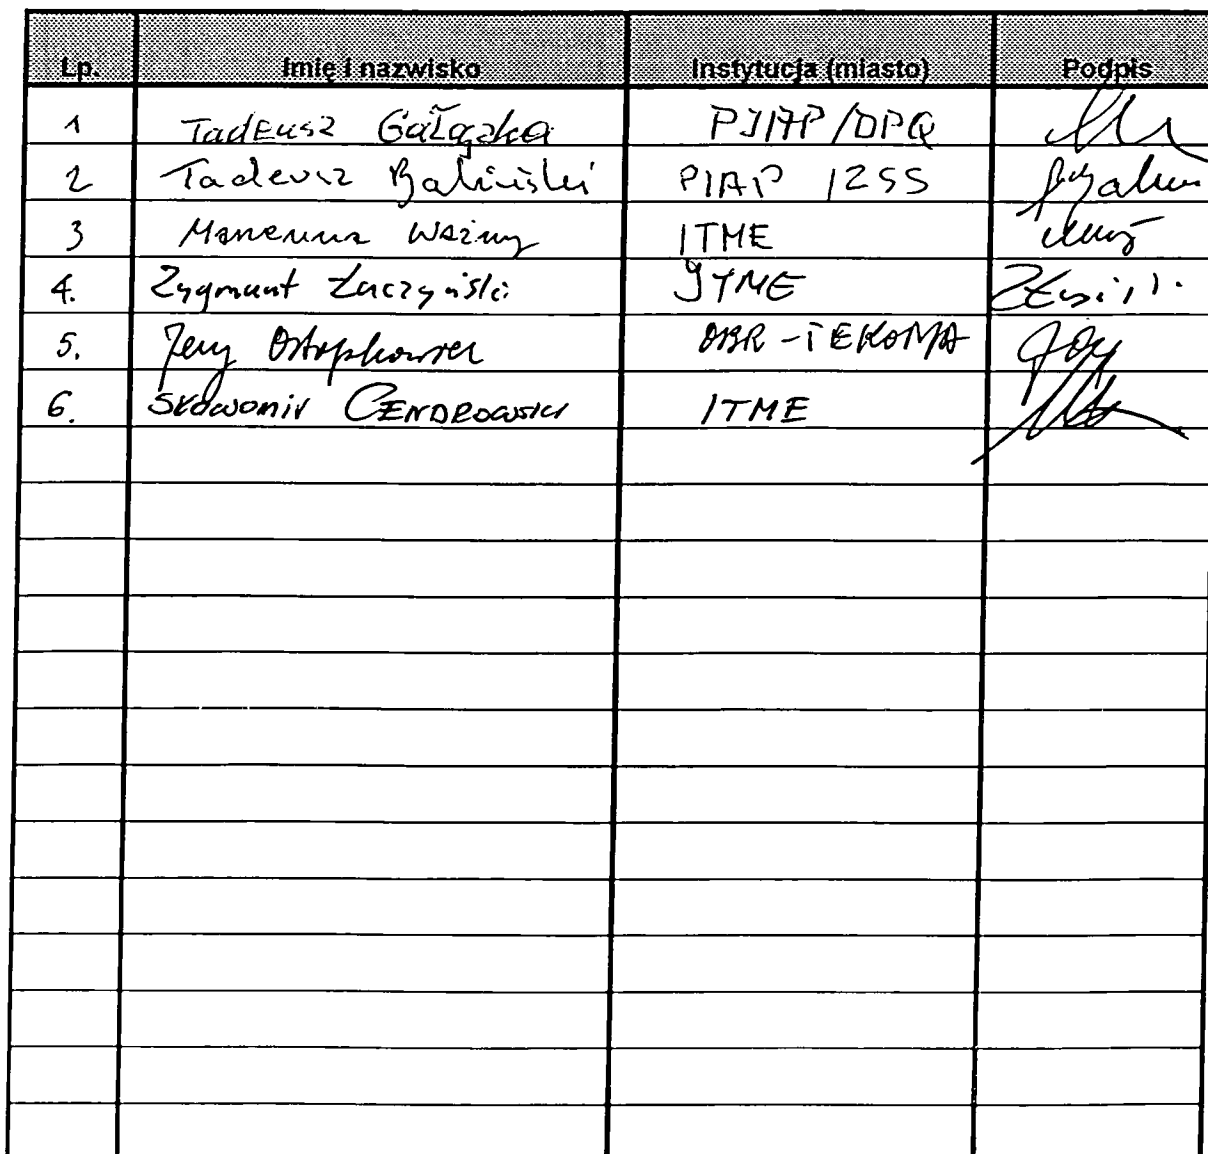 Lp. Imię i nazwisko Instytucja (miasto) Podpis
1 Tadeusz Gałązka PIAP/OPQ
2 Tadeusz Baliński PIAP
3 Ważny ITME
4. Zygmunt Łuczyński ITME
5. Jerzy OBR-TEKOMA
6. Sławomir CENDROWSKI ITME